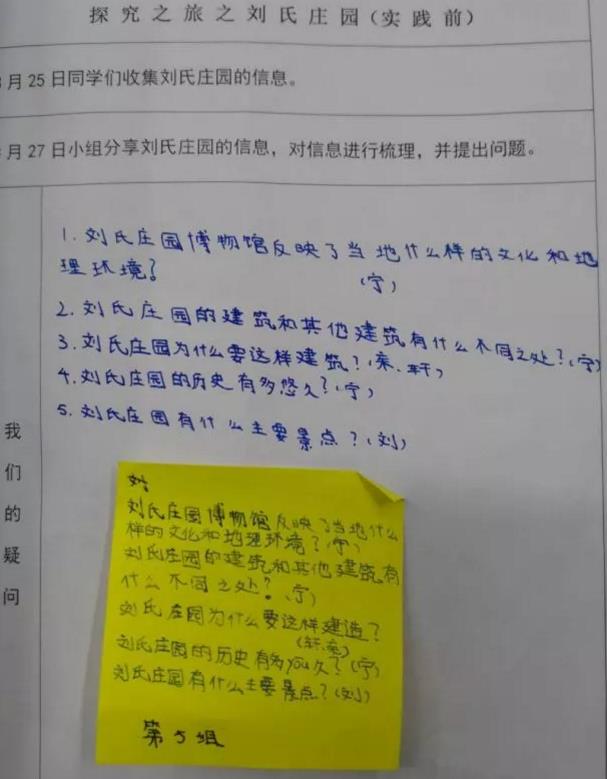 探究之旅之刘氏庄园(实践前)
月25日同学们收集刘氏庄园的信息。
月27日小组分享刘氏庄园的信息，对信息进行梳理，并提出问题。
我们的疑问
1.刘氏庄园博物馆反映了当地什么样的文化和地
理环境？(宁)
2.刘氏庄园的建筑和其他建筑有什么不同之处？(宁)
3.刘氏庄园为什么要这样建筑？( 、轩)
4.刘氏庄园的历史有多悠久？(宁)
5.刘氏庄园有什么主要景点？(刘)
刘氏庄园博物馆反映了当地什么
样的文化和地理环境？(宁)
刘氏庄园的建筑和其他建筑有
什么不同之处？(宁)
刘氏庄园为什么要这样建造？
刘氏庄园的历史有多you久？(宁)
刘氏庄园有什么主要景点？(刘)
第5组